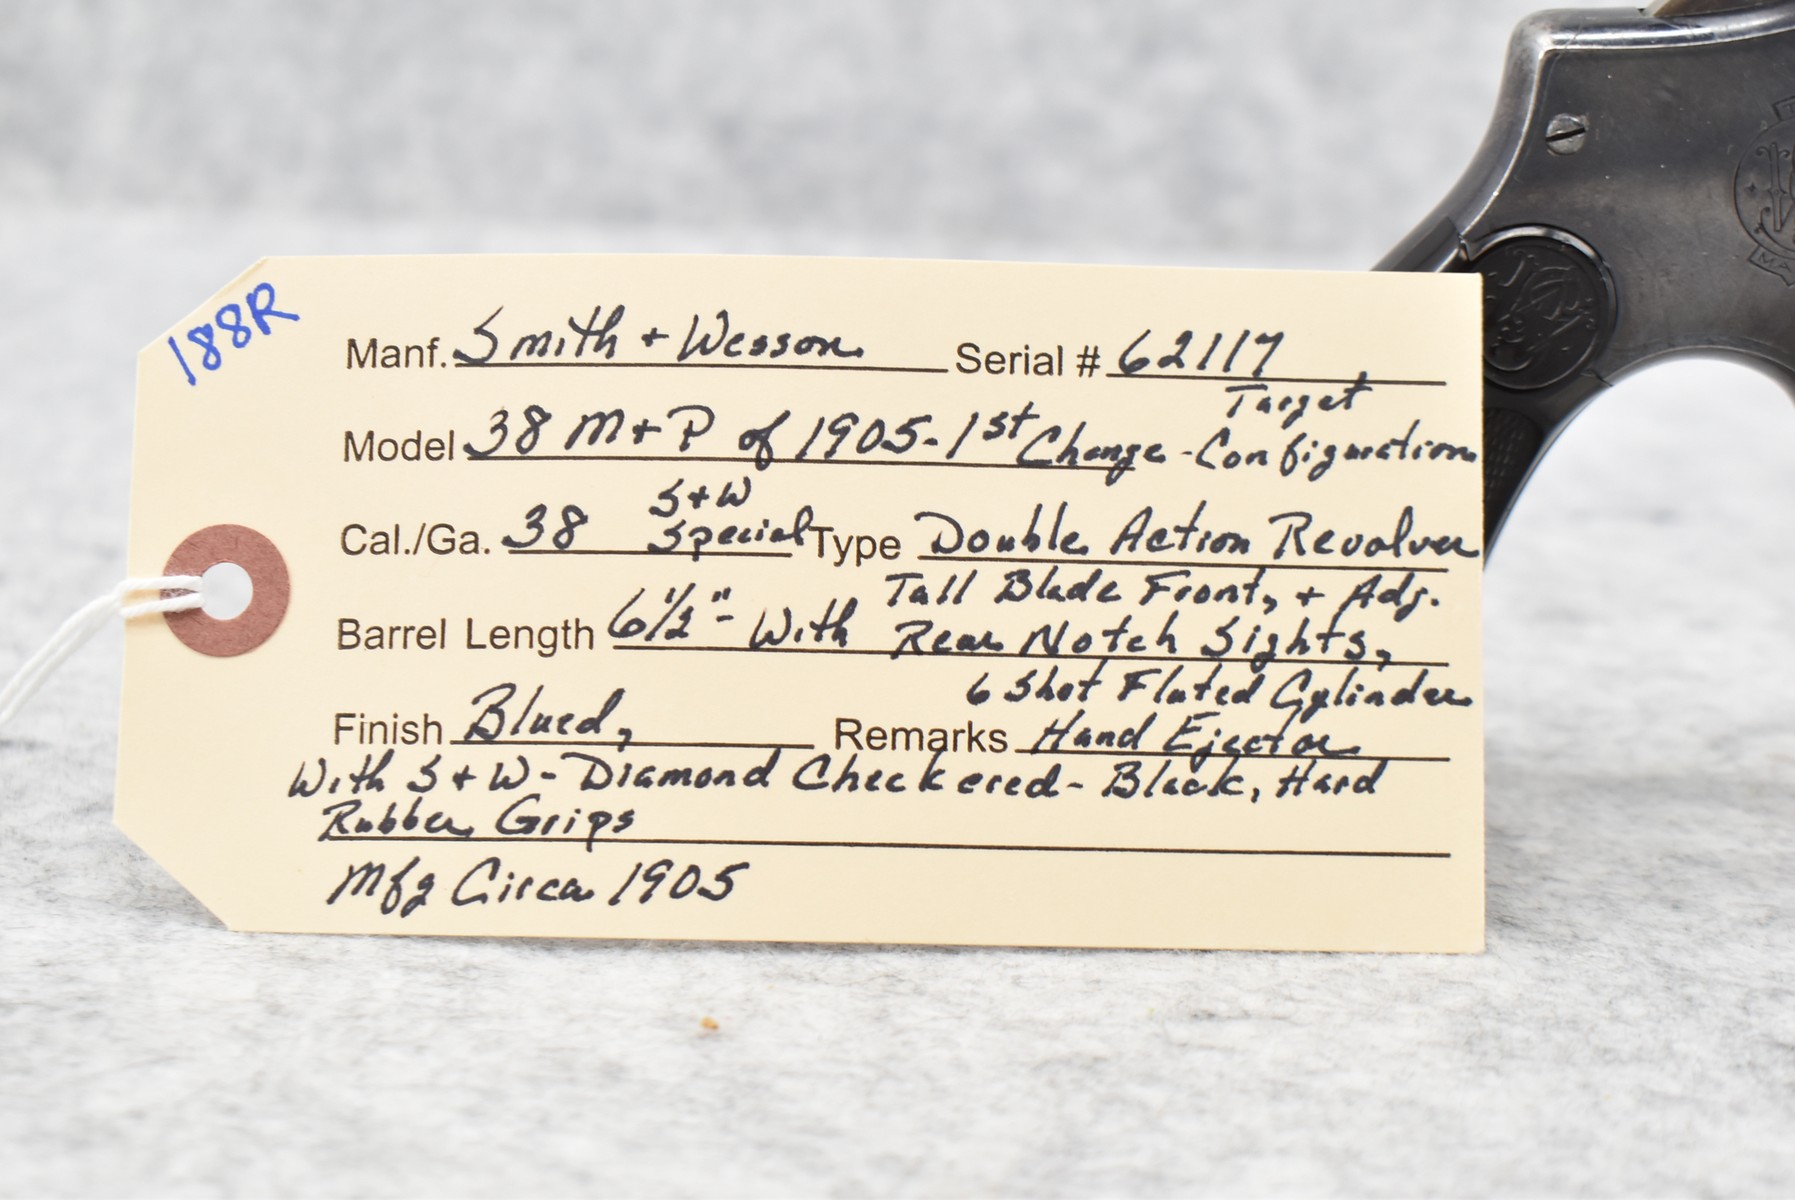 188R
Manf. Smith + Wesson Serial # 62117
Target
Model 38 M+P of 1905-1st Change - Configuration
S+W
Cal./Ga. 38 Special Type Double Action Revolver
Tall Blade Front, + Adj.
Barrel Length 6 1/2" - With Rear Notch Sights,
6 Shot Fluted Cylinder
Finish Blued, Remarks Hand Ejector
With S+W - Diamond Checkered - Black, Hard
Rubber Grips
Mfg Circa 1905